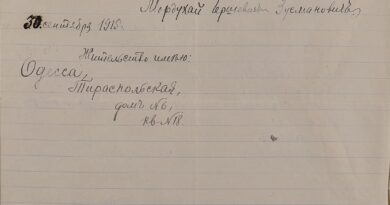 Мордухай Гершковичъ Зусмановичъ
30 сентября 1915.
Жительство имѣю:
Одесса,
Тираспольская,
домъ №6,
кв. №18.